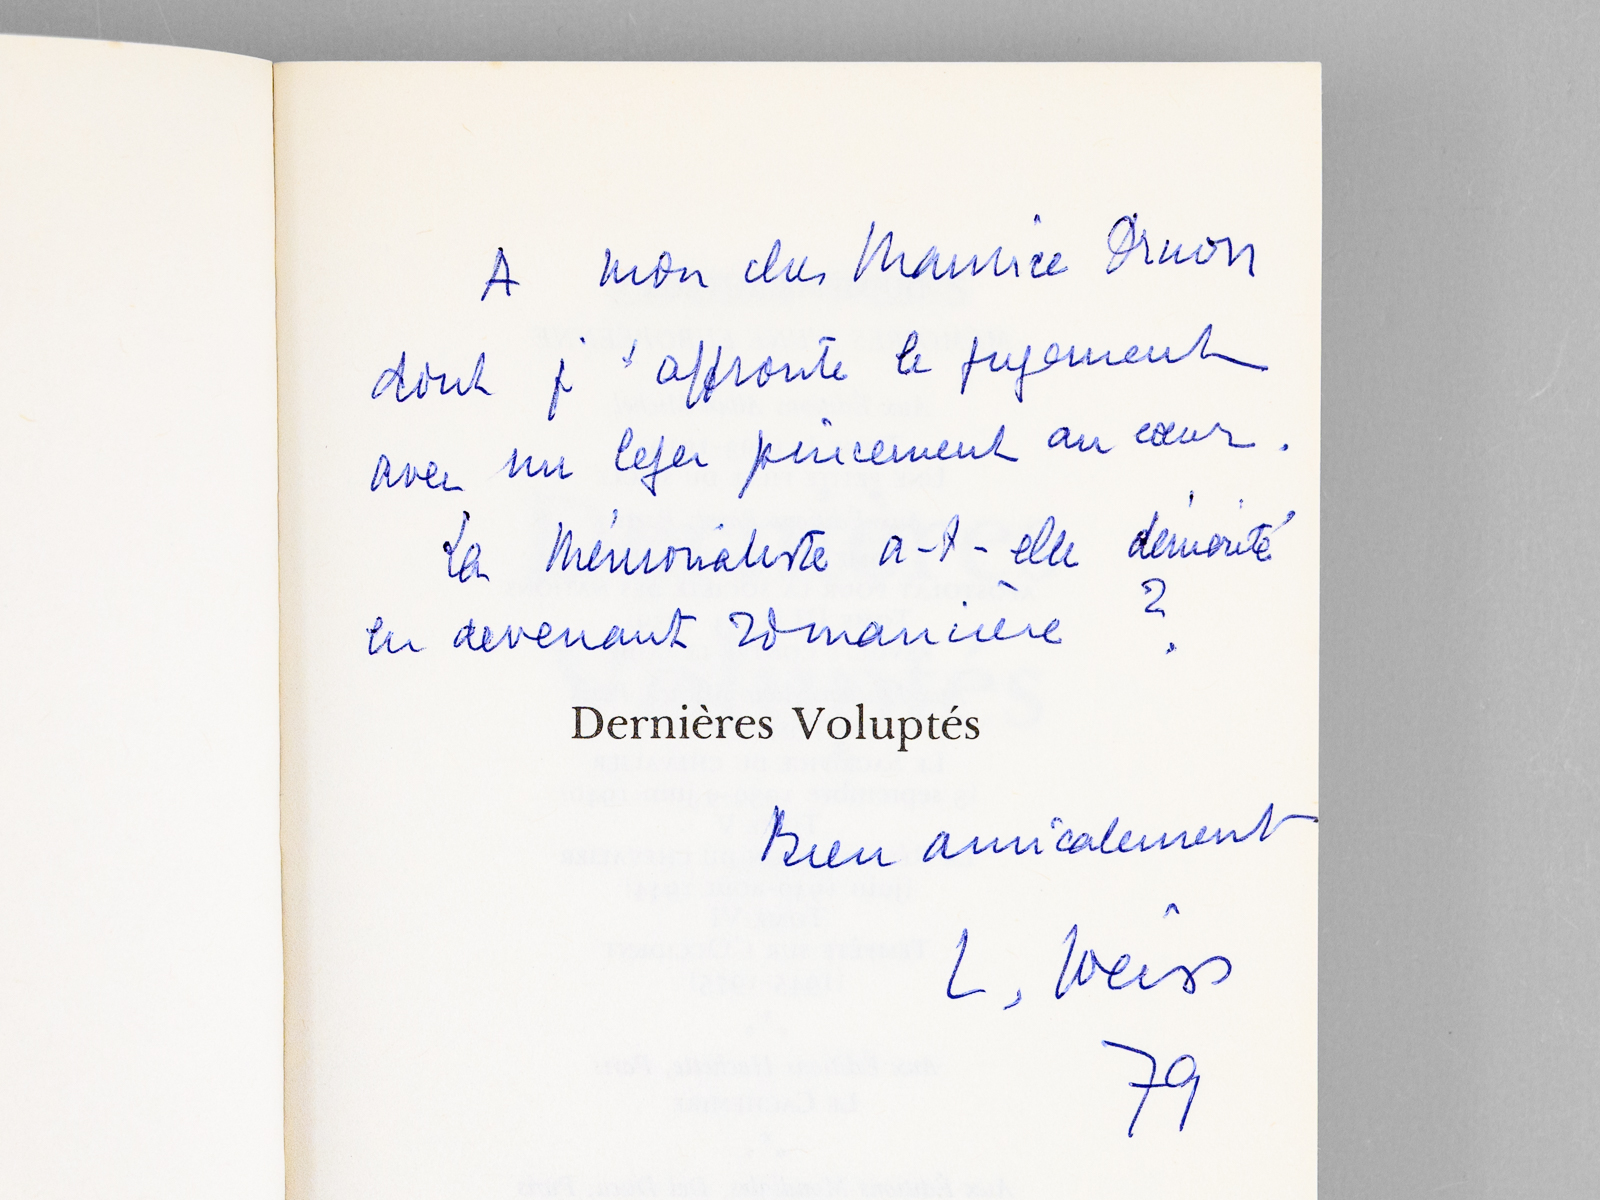 A mon cher Maurice Druon
dont j'affronte le jugement
avec un léger pincement au cœur.
La Mémorialiste a-t-elle démérité
en devenant romancière ?
Dernières Voluptés
Bien amicalement
L. Weiss
79